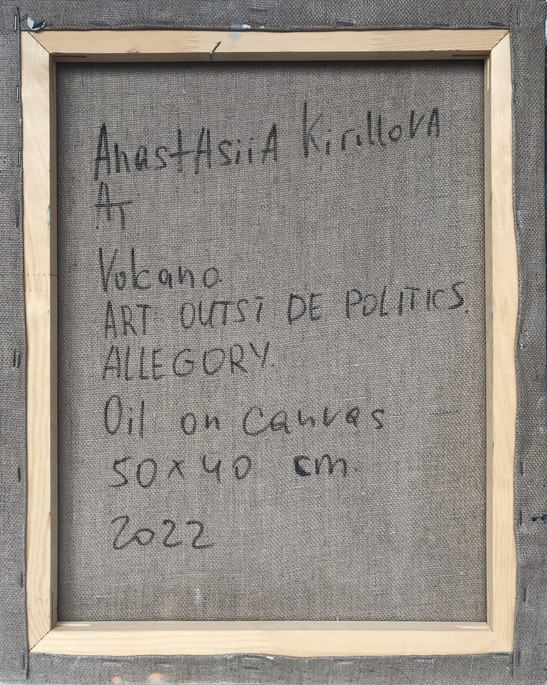 AnastAsiiA KirilloVA
AT
Volcano
ART OUTSI DE POLITICS.
ALLEGORY.
Oil on canvas
50 x 40 cm.
2022